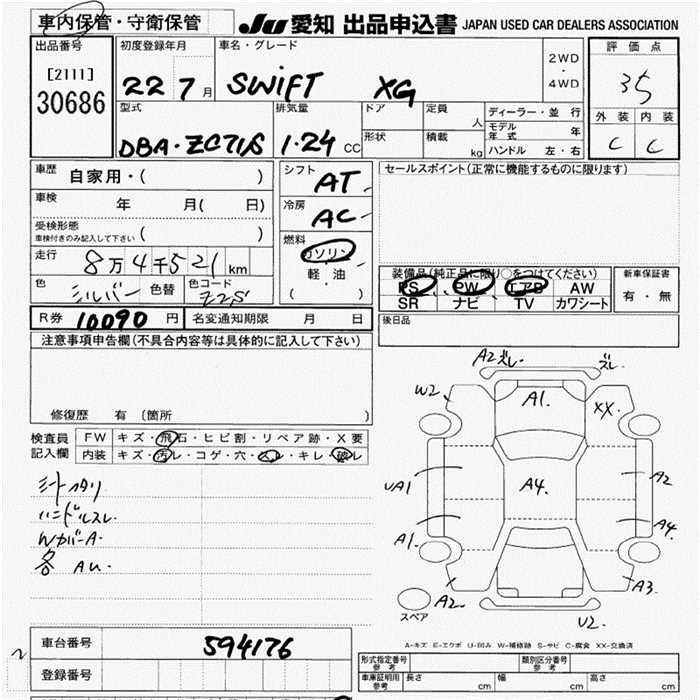 車内保管・守衛保管 JU 愛知 出品申込書 JAPAN USED CAR DEALERS ASSOCIATION
出品番号 初度登録年月 車名・グレード 2WD・4WD 評価点
[2111] 30686 22 7月 SWIFT XG 35
型式 排気量 ドア 定員 人 ディーラー・並行 外装 内装
DBA・ZC71S 1.24 CC 形状 積載 kg モデル年式 年 C C
ハンドル 左・右
車歴 自家用・( ) シフト AT セールスポイント(正常に機能するものに限ります)
車検 年 月( 日) 冷房 AC
受検形態 ( )
車検付きのみ記入して下さい
燃料 ガソリン
軽・油
( )
走行 8万4千521km
色 シルバー 色替 色コード Z2S
装備品(純正品に限り○をつけてください) 新車保証書
PS PW エアB AW 有・無
SR ナビ TV カワシート
R券 10090円 名変通知期限 月 日 後日品
注意事項申告欄(不具合内容等は具体的に記入して下さい)
修復歴 有 (箇所 )
検査員記入欄 FW キズ・飛石・ヒビ割・リペア跡・X要
内装 キズ・汚レ・コゲ・穴・スレ・キレ・破レ
シートヘタリ
ハンドルスレ
WカバーA
各 AU
A2ズレ ズレ
W2 A1 XX
UA1 A4 A2
A1 A4
A2 A3
スペア U2
A-キズ E-エクボ U-凹み W-補修跡 S-サビ C-腐食 XX-交換済
車台番号 594176
登録番号
形式指定番号 参考 類別区分番号 参考
車庫証明用 参考 長さ cm 幅 cm 高さ cm